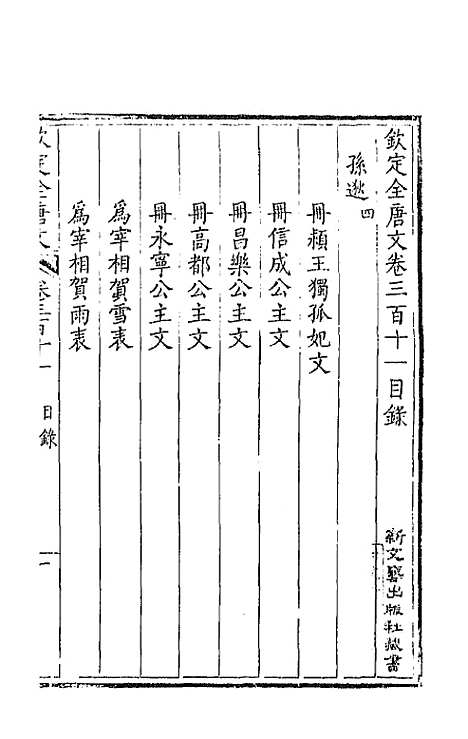 欽定全唐文卷三百十一目錄
新文藝出版社藏書
孫逖 四
冊潁王獨孤妃文
冊信成公主文
冊昌樂公主文
冊高都公主文
冊永寧公主文
爲宰相賀雪表
爲宰相賀雨表
欽定全唐文 卷三百十一 目錄 一